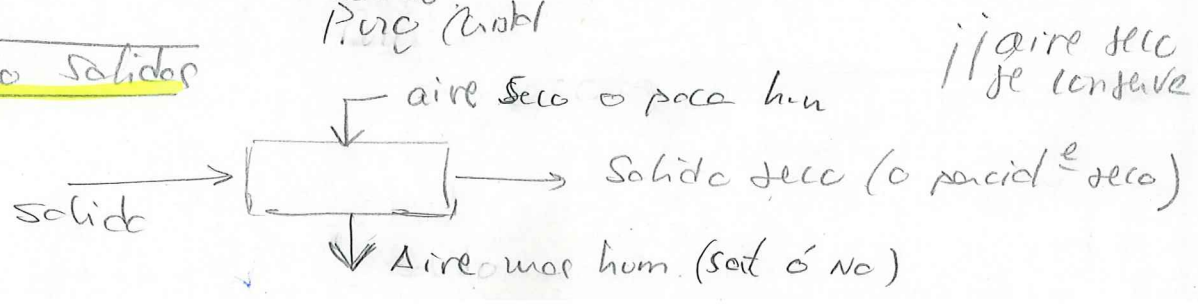 o solidos
¡¡aire seco
se conserve
aire seco o poco hum
solido
Solido seco (o parcial e seco)
Aire mas hum. (sat ó No)